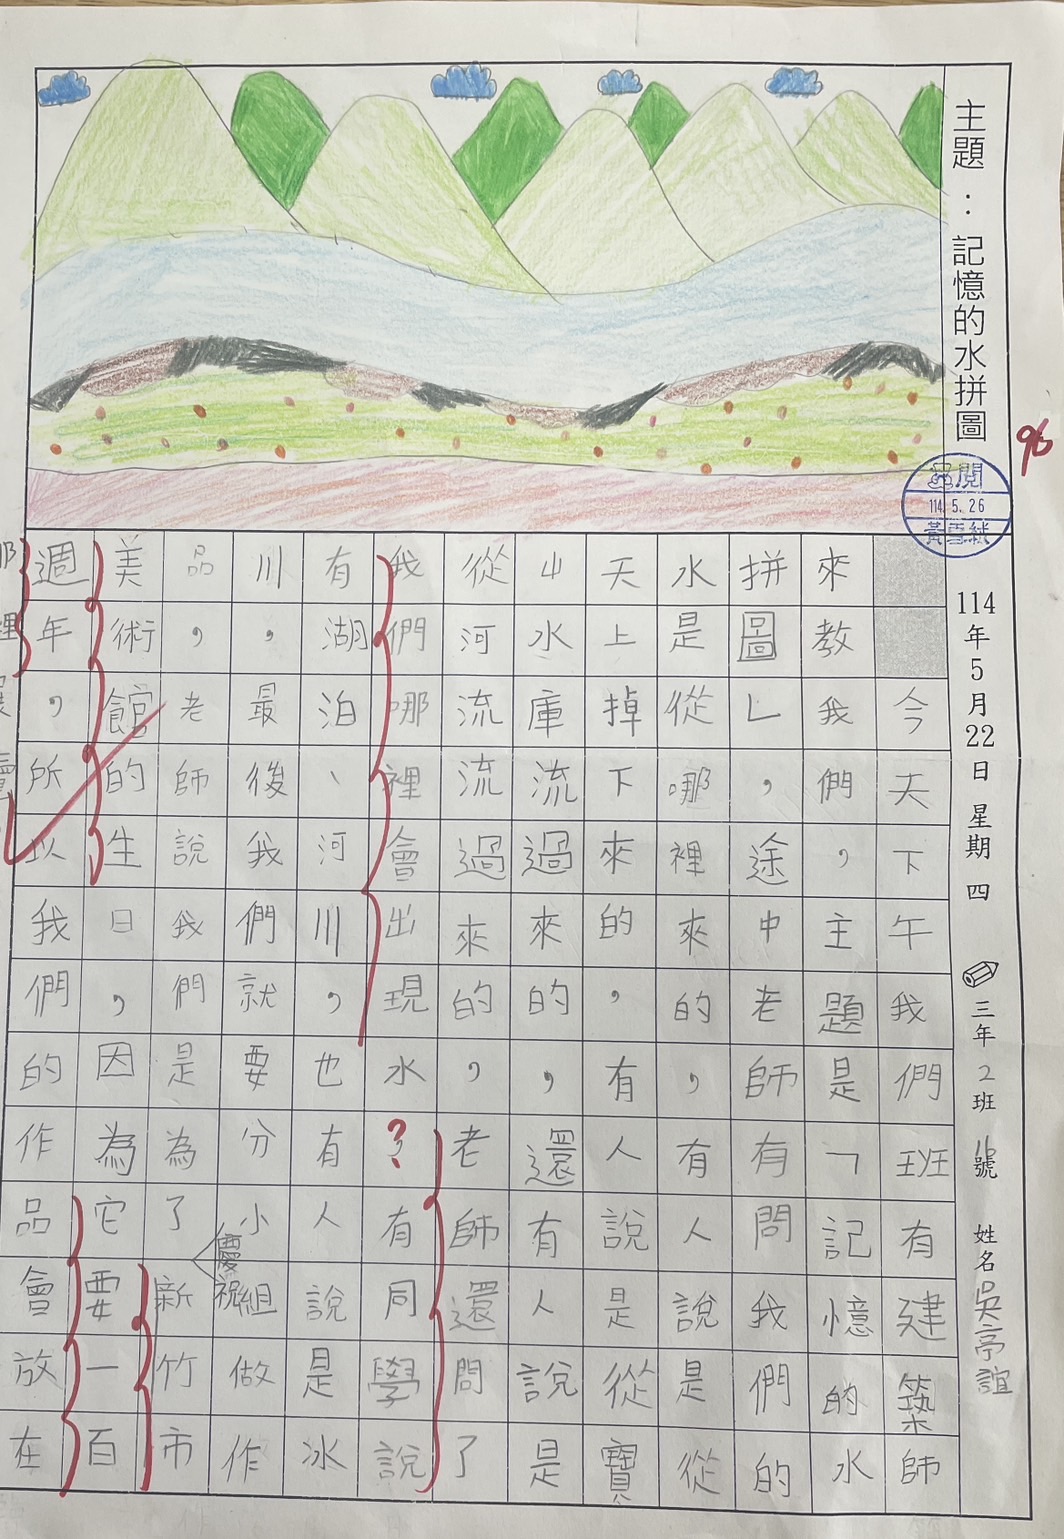 主題:記憶的水拼圖
114年5月22日 星期四 三年2班 號 姓名吳亭誼
96
閱
114. 5. 26
今天下午我們班有建築師
來教我們,主題是「記憶的水
拼圖」,途中老師有問我們的
水是從哪裡來的,有人說是從
天上掉下來的,有人說是從寶
山水庫流過來的,還有人說是
從河流流過來的,老師還問了
我們哪裡會出現水?有同學說
有湖泊、河川,也有人說是冰
川,最後我們就要分小組做作
品,老師說我們是為了慶祝新竹市
美術館的生日,因為它要一百
週年,所以我們的作品會放在